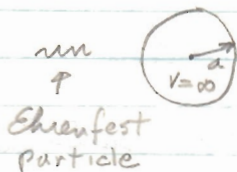 a
V=∞
Ehrenfest
particle